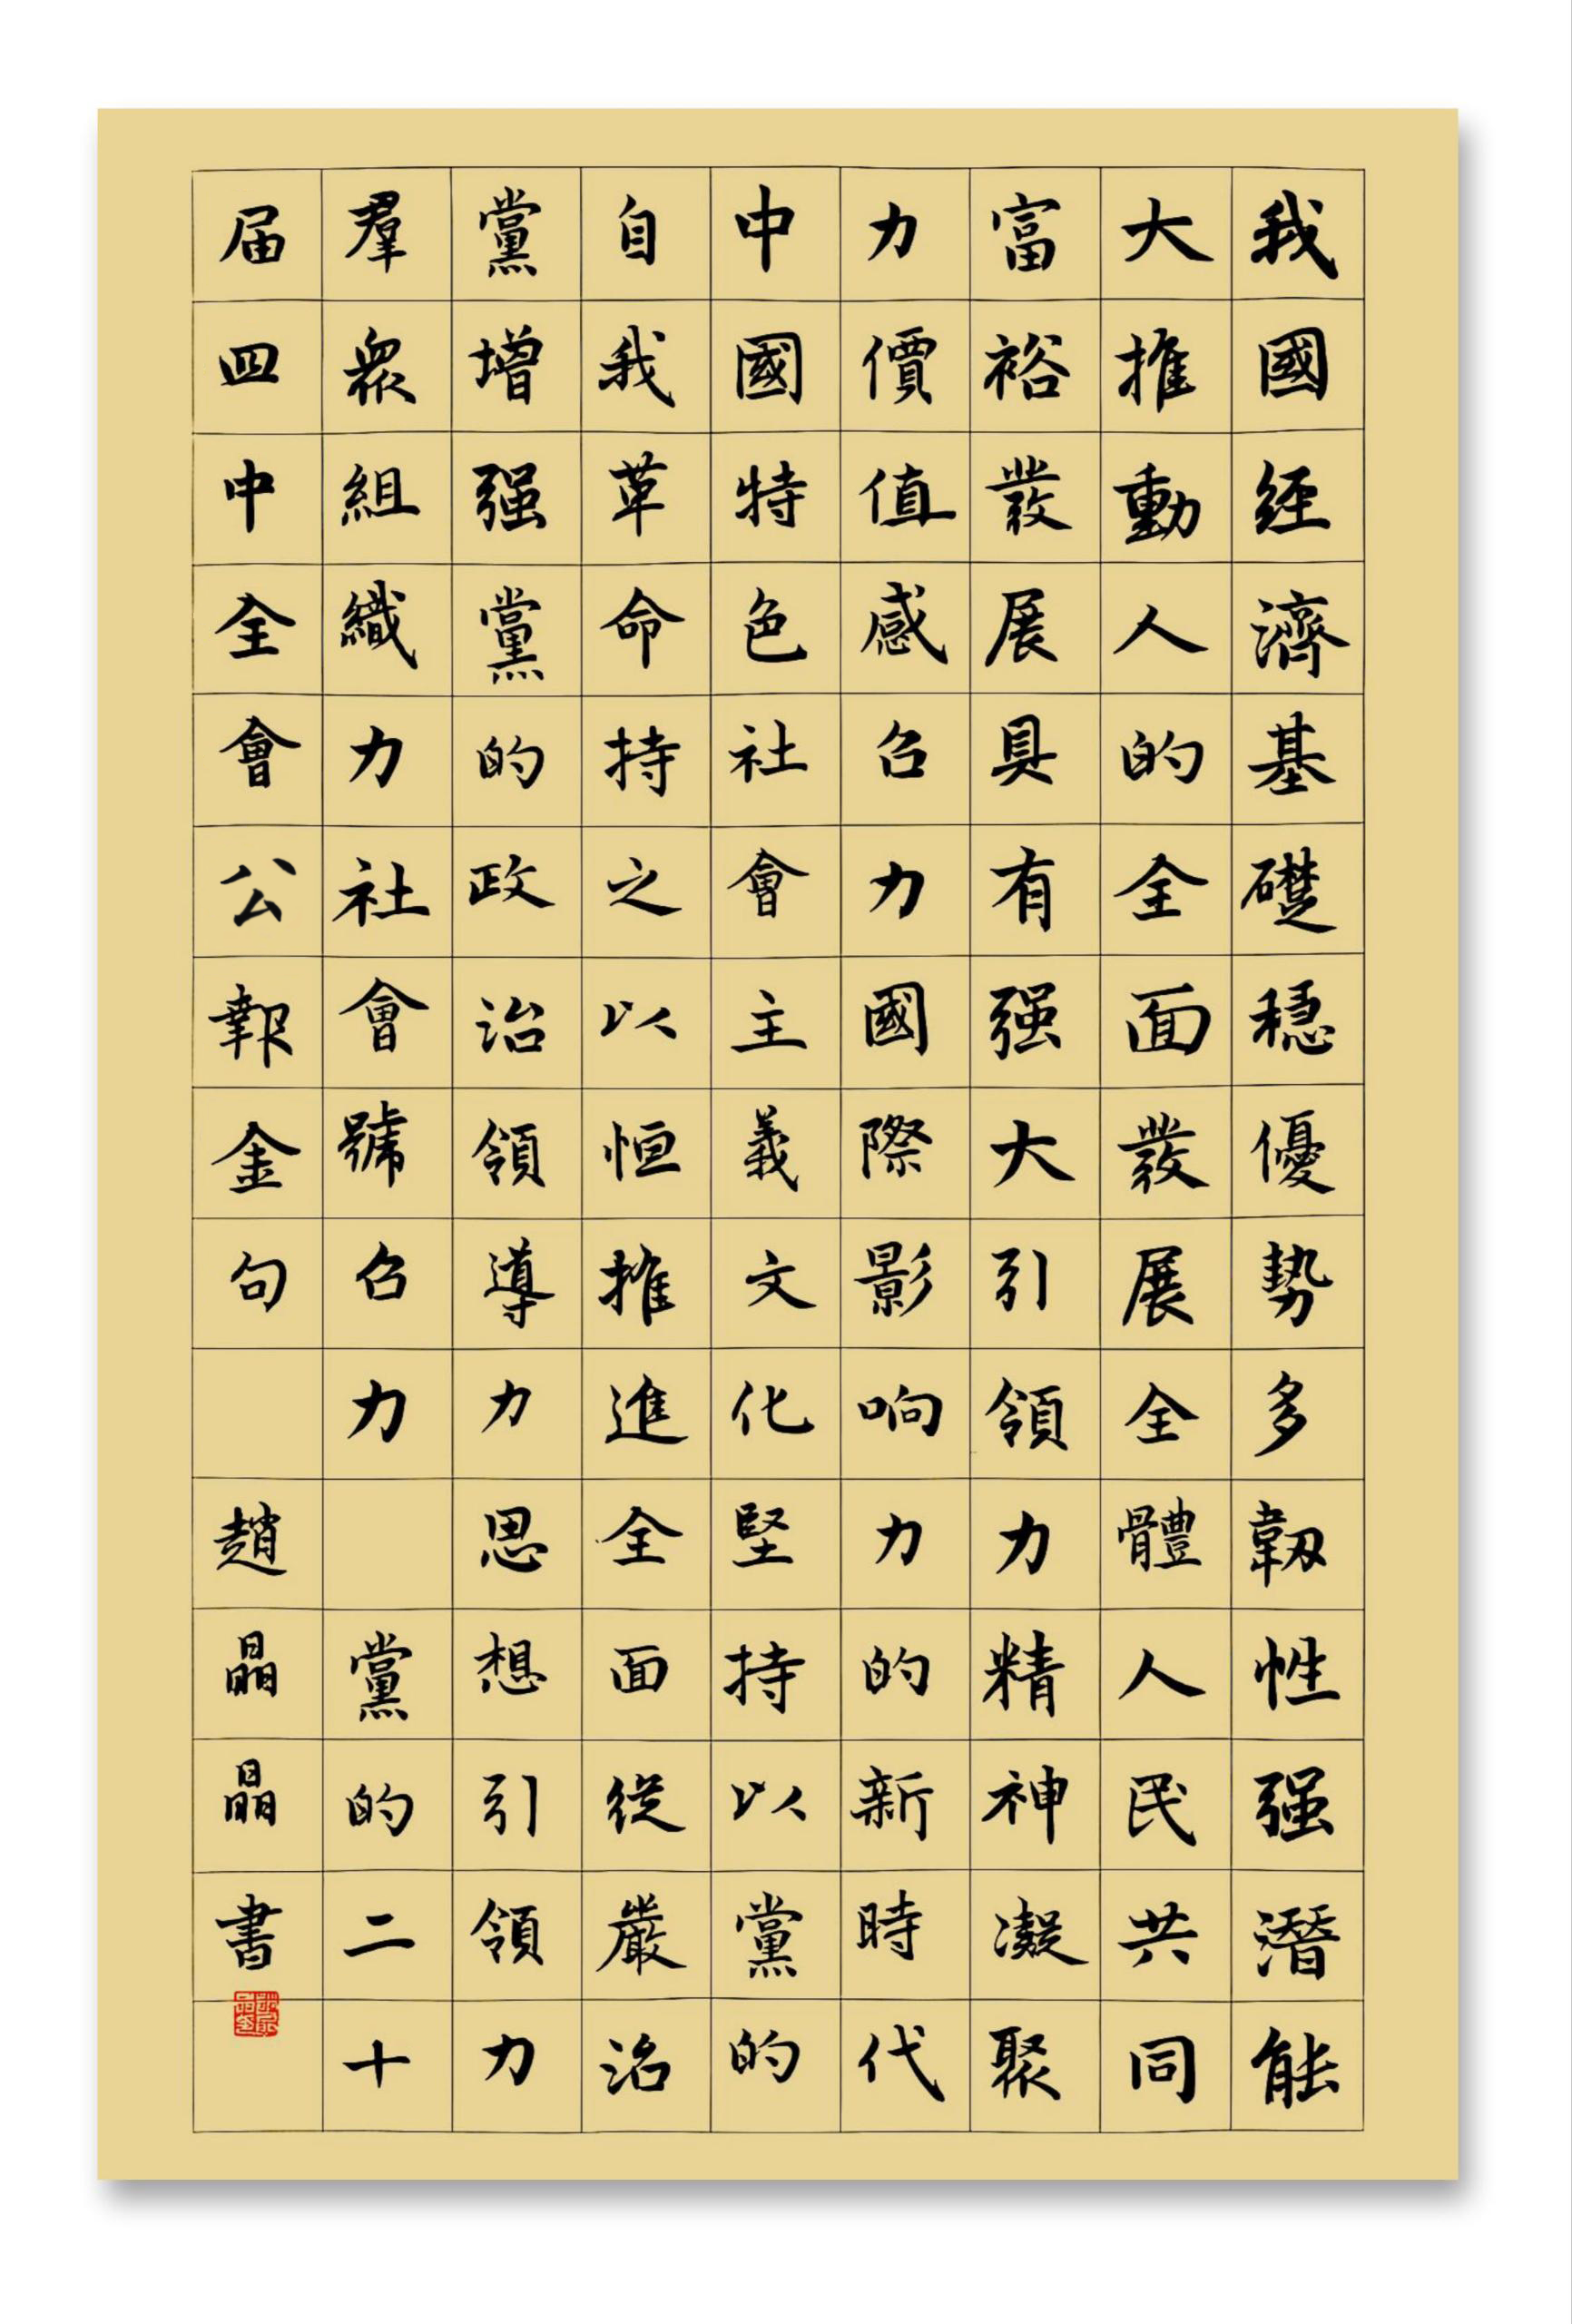 我國経濟基礎穩優勢多韌性强潛能
大推動人的全面發展全體人民共同
富裕發展具有强大引領力精神凝聚
力價值感召力國際影响力的新時代
中國特色社會主義文化堅持以黨的
自我革命持之以恒推進全面從嚴治
黨增强黨的政治領導力思想引領力
羣衆組織力社會號召力 黨的二十
届四中全會公報金句 趙晶晶書